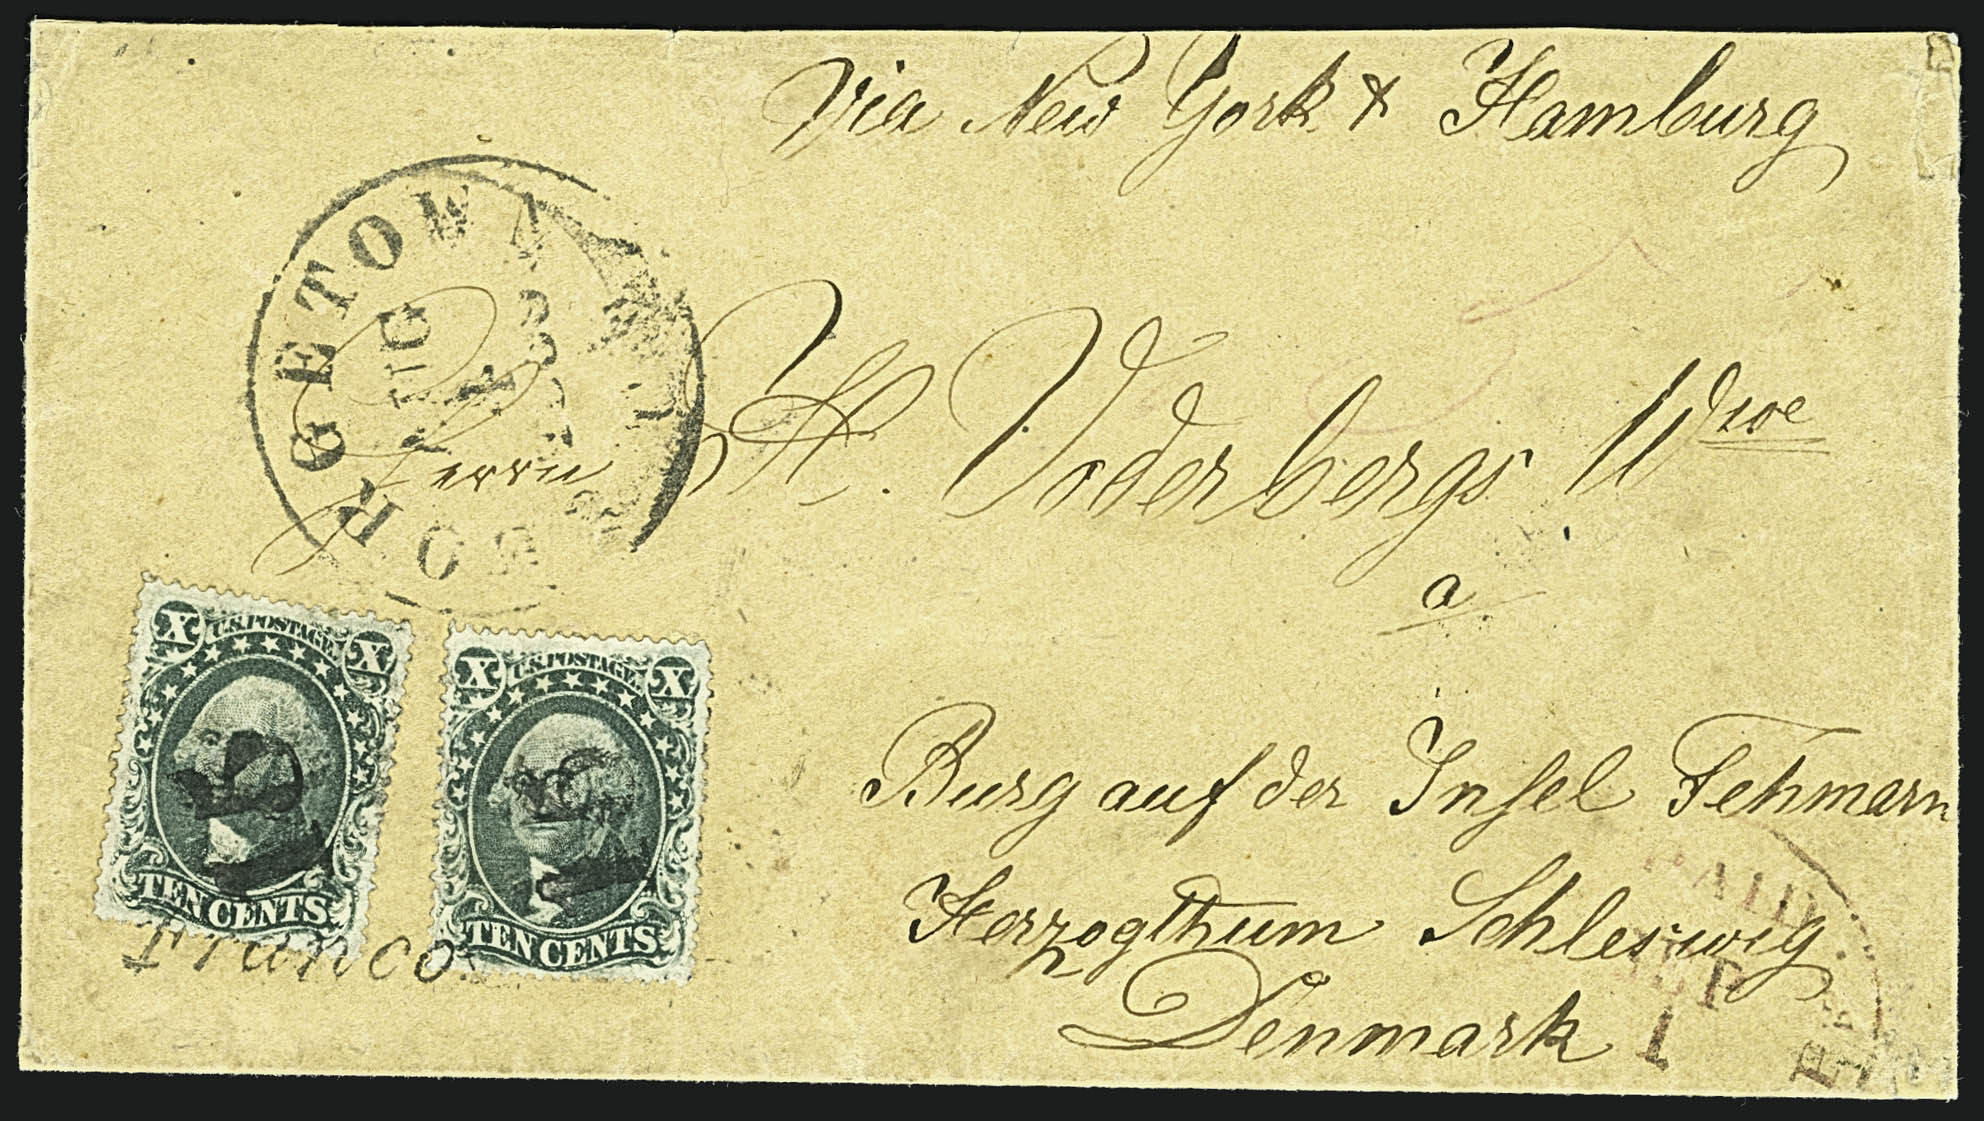 Via New York & Hamburg
GEORGETOWN
AUG
Herrn H. Voderbergs Wwe
a
Burg auf der Insel Fehmarn
Herzogthum Schleswig
Denmark
X U.S. POSTAGE X
TEN CENTS
X U.S. POSTAGE X
TEN CENTS
Franco
PAID
SEP
1